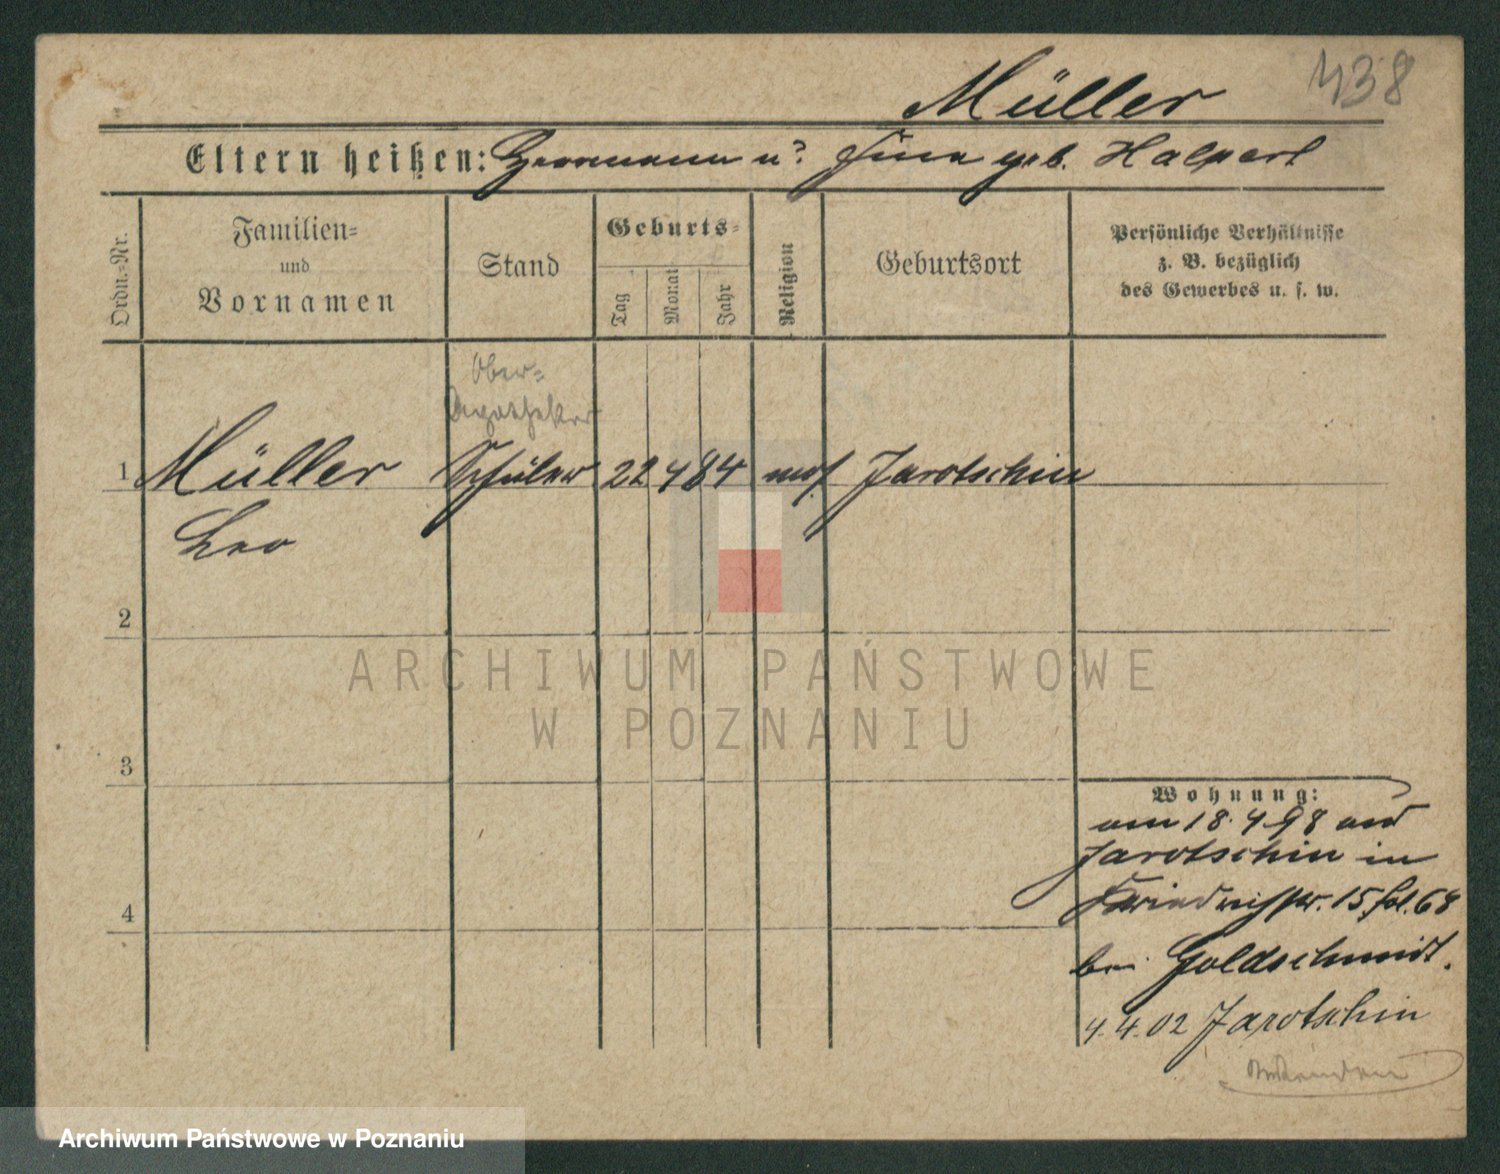 438
Müller
Eltern heißen: Hermann u. Fina geb. Halpert
Ordn.-Nr.
Familien-
und
Vornamen
Stand
Geburts-
Tag
Monat
Jahr
Religion
Geburtsort
Persönliche Verhältnisse
z. B. bezüglich
des Gewerbes u. s. w.
Ober-
Apotheker
1 Müller Schüler 22 4 84 mos. Jarotschin
Leo
2
3
4
Wohnung:
am 18.4.98 aus
Jarotschin in
15 68
bei Goldschmidt.
4.4.02 Jarotschin
ARCHIWUM PAŃSTWOWE
W POZNANIU
Archiwum Państwowe w Poznaniu